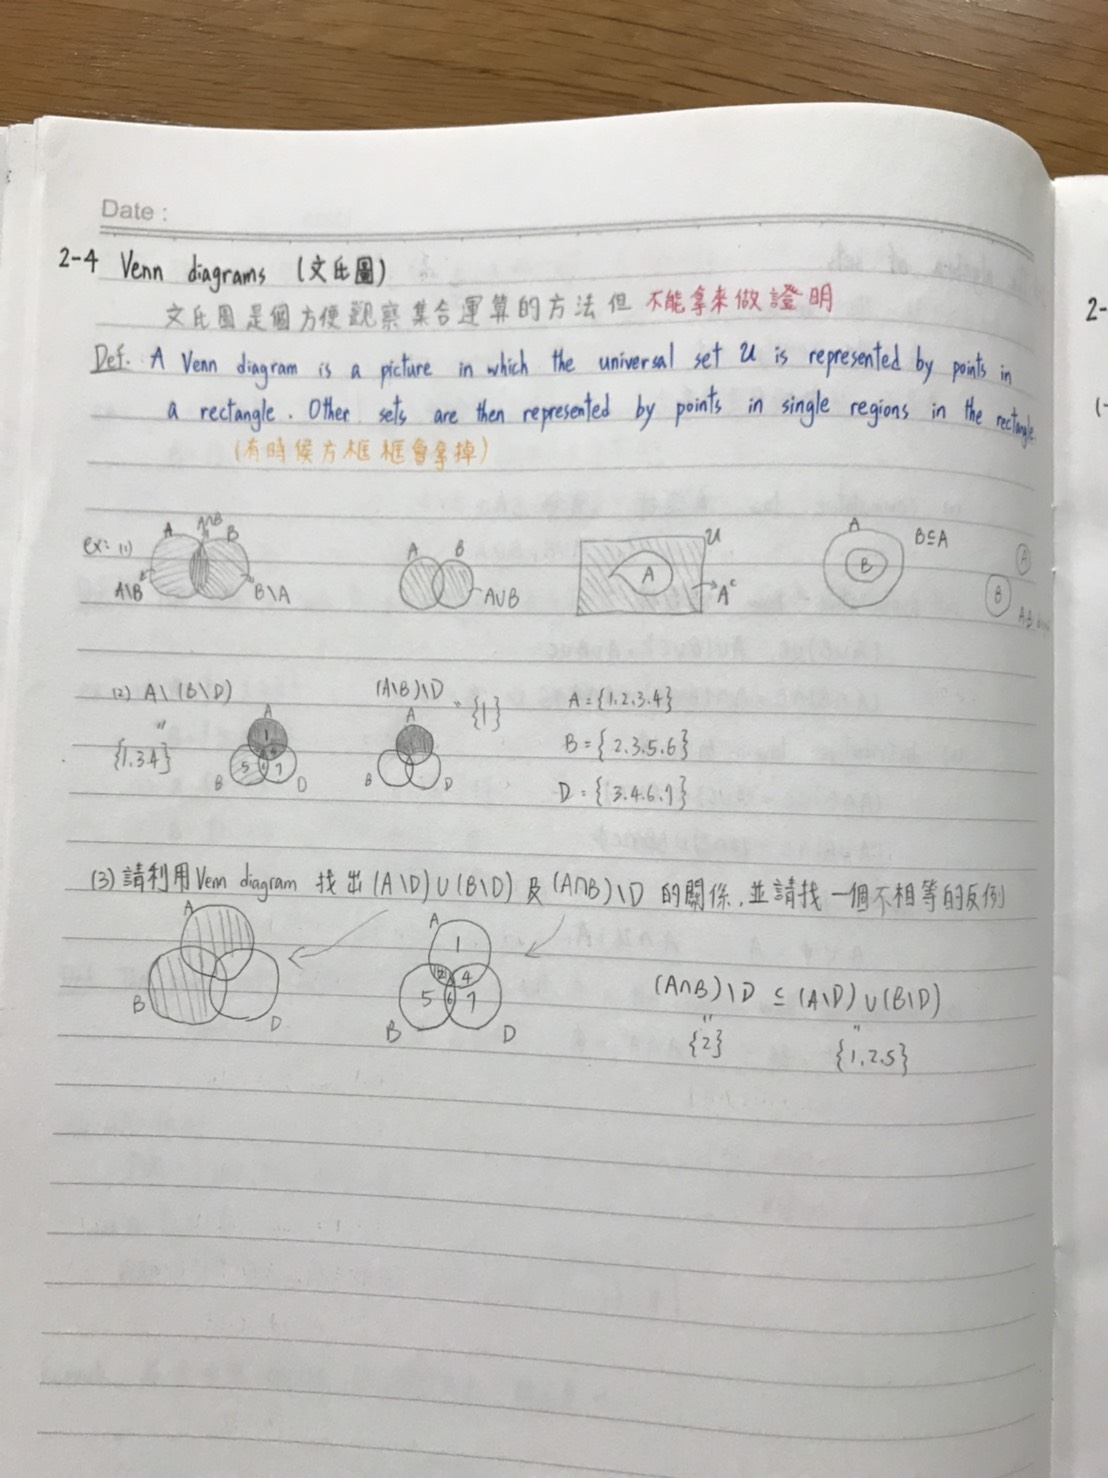 Date :
2-4 Venn diagrams (文氏圖)
文氏圖是個方便觀察集合運算的方法但 不能拿來做證明
Def. A Venn diagram is a picture in which the universal set U is represented by points in
a rectangle. Other sets are then represented by points in single regions in the rectangle
(有時候方框框會拿掉)
ex: (1) A A∩B B A\B B\A
A B A∪B
U A Aᶜ
A B B⊆A
B
(2) A\(B\D) " {1.3.4}
A 1 5 7 B D
(A\B)\D = {1}
A B D
A = {1.2.3.4}
B = { 2.3.5.6}
D = { 3.4.6.7}
(3) 請利用Venn diagram 找出 (A\D)∪(B\D) 及 (A∩B)\D 的關係,並請找一個不相等的反例
A B D
A 1 2 4 5 6 7 B D
(A∩B)\D ⊆ (A\D)∪(B\D)
" "
{2} {1.2.5}
2-